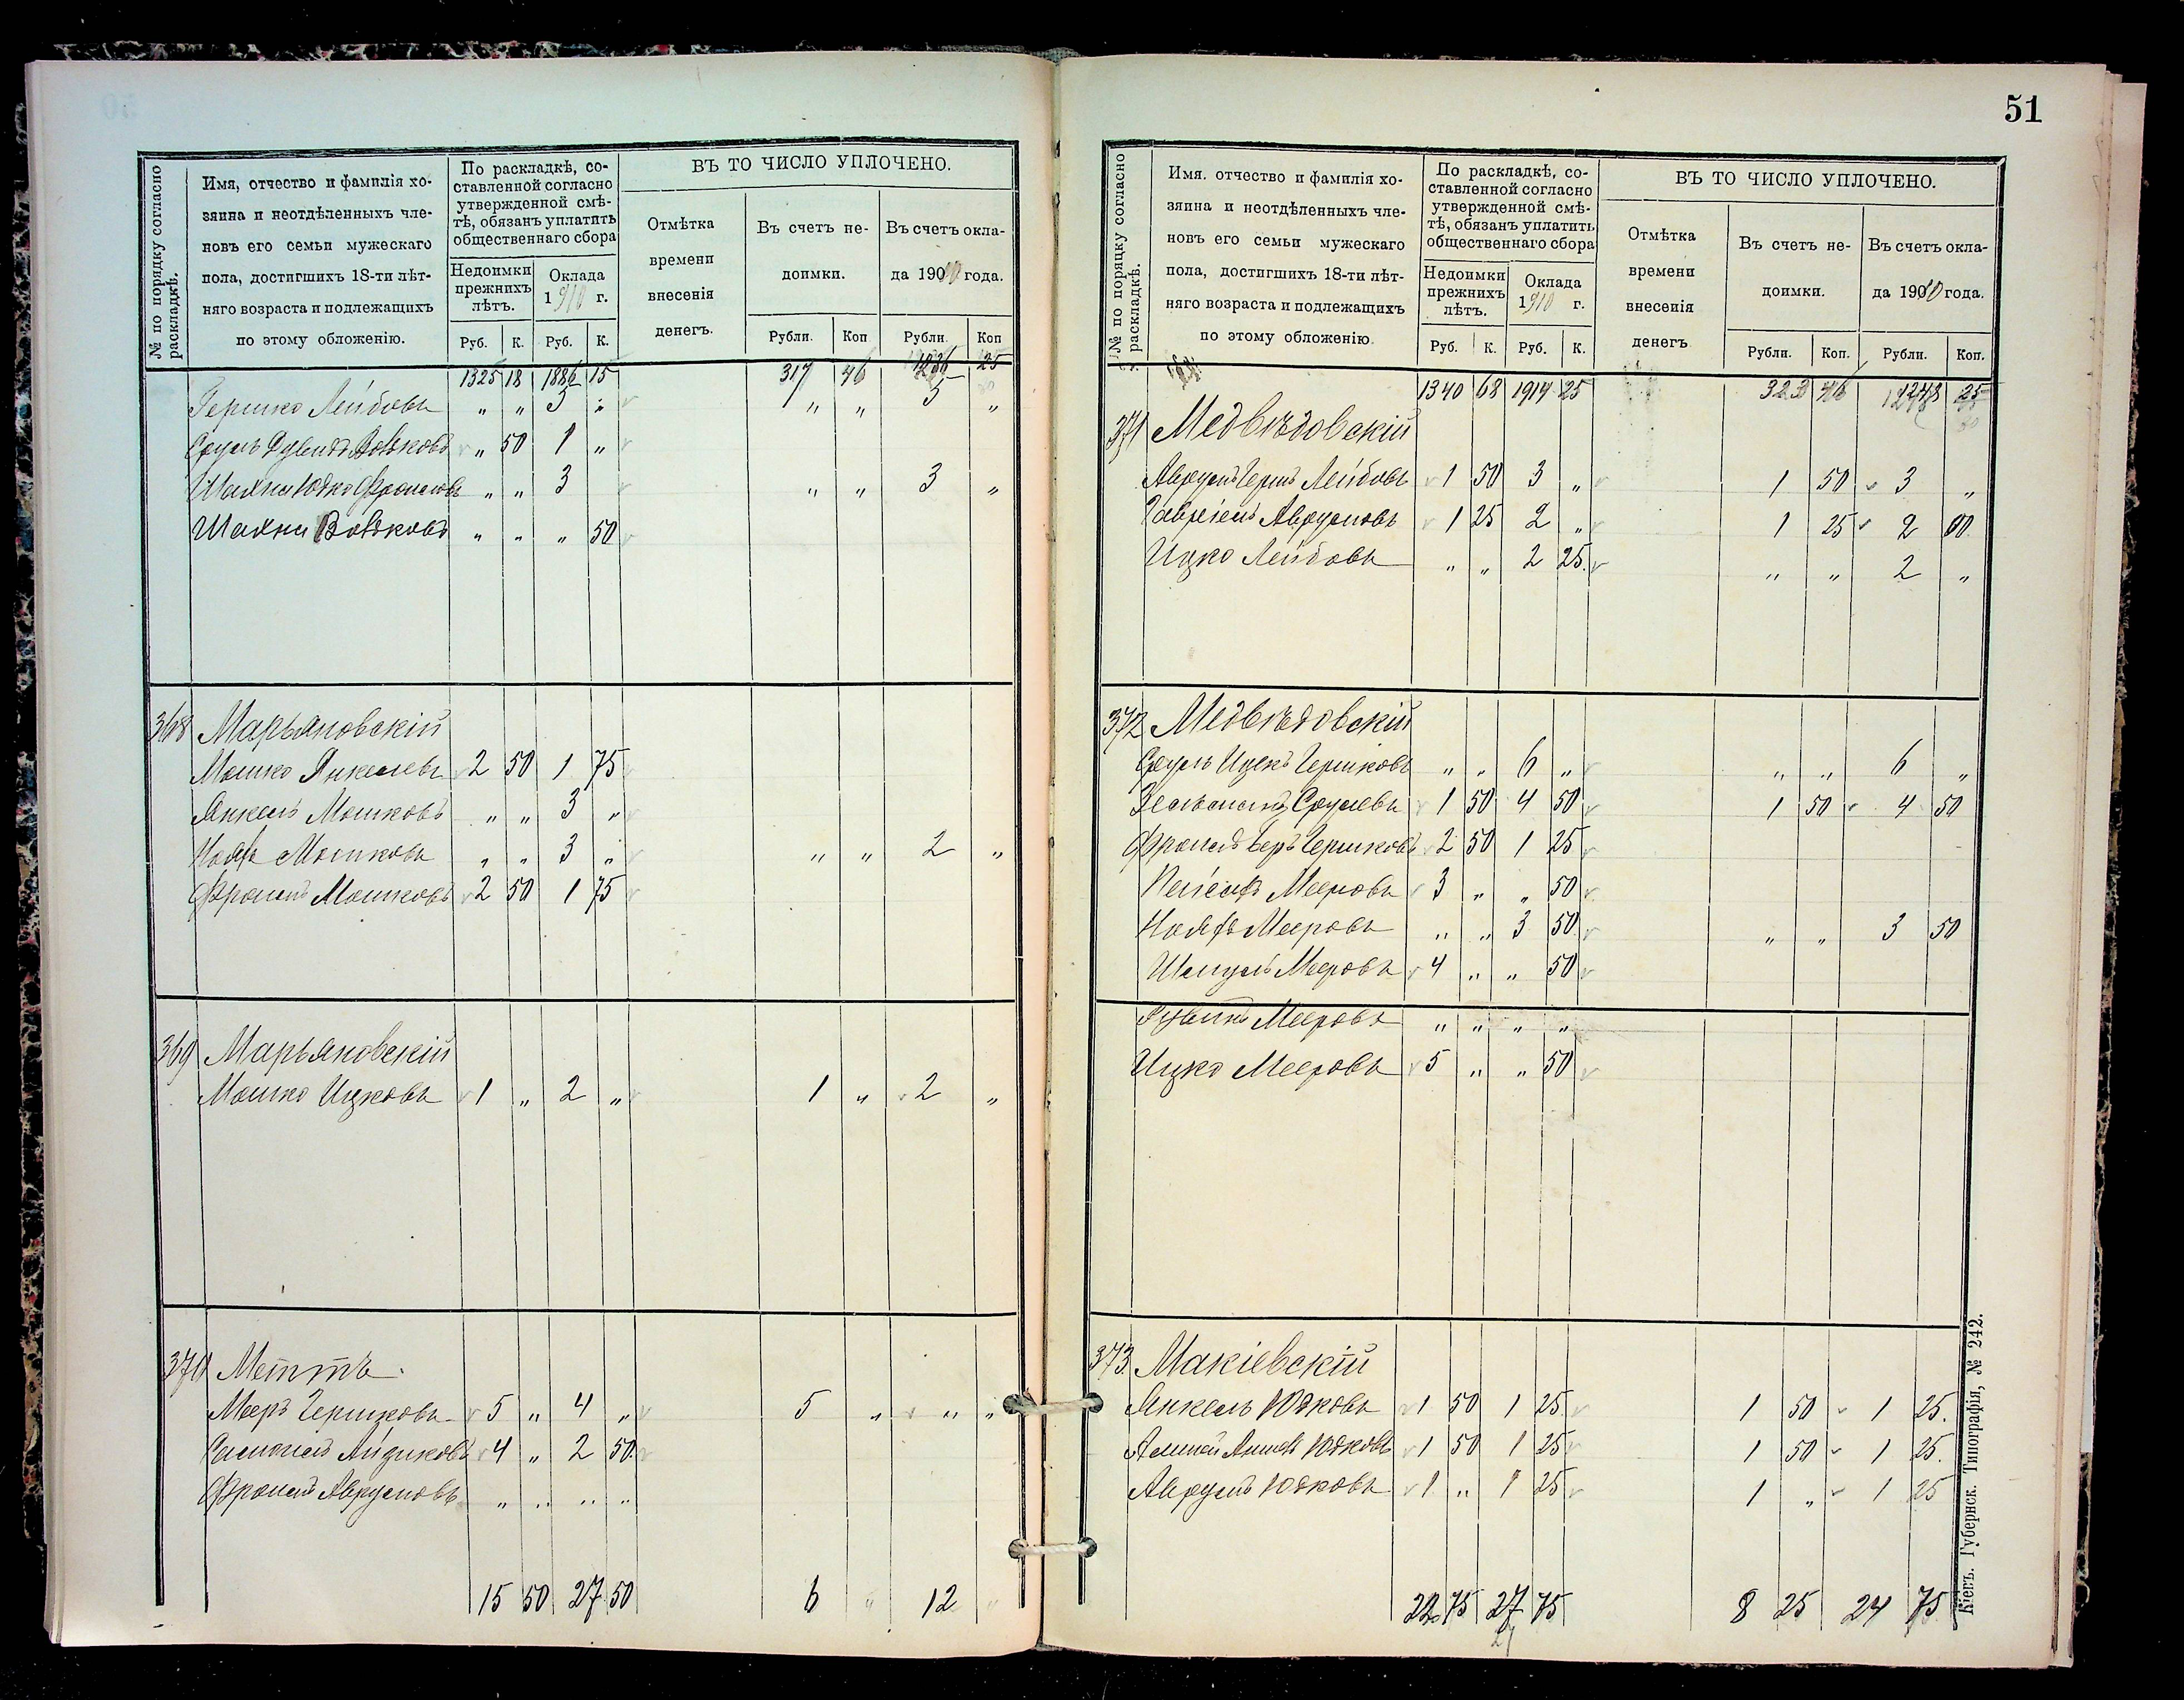 № по порядку согласно
раскладкѣ.
Имя, отчество и фамилія хо-
зяина и неотдѣленныхъ чле-
новъ его семьи мужескаго
пола, достигшихъ 18-ти лѣт-
няго возраста и подлежащихъ
по этому обложенію.
По раскладкѣ, со-
ставленной согласно
утвержденной смѣ-
тѣ, обязанъ уплатить
общественнаго сбора
Недоимки
прежнихъ
лѣтъ.
Оклада
1910 г.
Руб. К. Руб. К.
ВЪ ТО ЧИСЛО УПЛОЧЕНО.
Отмѣтка
времени
внесенія
денегъ.
Въ счетъ не-
доимки.
Рубли. Коп
Въ счетъ окла-
да 1910 года.
Рубли. Коп
1325 18 1886 15 317 46 1236 25
Гершко Лейбовъ " " 3 " " " 3 "
Сруль Дувидъ Вовковъ " 50 1 "
Шахни Юдко Фроимовъ " " 3 " " 3 "
Шахни Вовковъ " " " 50
368 Марьяновскій
Мошко Янкелевъ 2 50 1 75
Янкель Мошковъ " " 3 "
Іосифъ Мошковъ " " 3 " " " 2 "
Фроимъ Мошковъ 2 50 1 75
369 Марьяновскій
Мошко Ицковъ 1 " 2 " 1 " 2 "
370 Метть.
Мееръ Гершковъ 5 " 4 " 5 " " "
4 " 2 50
Фроимъ Аврумовъ " " " "
15 50 27 50 6 " 12 "
51
№ по порядку согласно
раскладкѣ.
Имя. отчество и фамилія хо-
зяина и неотдѣленныхъ чле-
новъ его семьи мужескаго
пола, достигшихъ 18-ти лѣт-
няго возраста и подлежащихъ
по этому обложенію
По раскладкѣ, со-
ставленной согласно
утвержденной смѣ-
тѣ, обязанъ уплатить
общественнаго сбора
Недоимки
прежнихъ
лѣтъ.
Оклада
1910 г.
Руб. К. Руб. К.
ВЪ ТО ЧИСЛО УПЛОЧЕНО.
Отмѣтка
времени
внесенія
денегъ
Въ счетъ не-
доимки.
Рубли. Коп.
Въ счетъ окла-
да 1910 года.
Рубли. Коп.
1340 68 1914 25 323 46 1248 25
371 Медвѣдовскій
Аврумъ Гершъ Лейбовъ 1 50 3 " 1 50 3 "
Гавріель Аврумовъ 1 25 2 " 1 25 2 00
Ицко Лейбовъ " " 2 25 " " 2 "
372 Медвѣдовскій
Сруль Ицекъ Гершковъ " " 6 " " " 6 "
Зельманъ Срулевъ 1 50 4 50 1 50 4 50
Фроимъ Беръ Гершковъ 2 50 1 25
Мееровъ 3 " " 50
Іосифъ Мееровъ " " 3 50 " " 3 50
Шмуль Мееровъ 4 " " 50
Рувинъ Мееровъ " " " "
Ицко Мееровъ 5 " " 50
373. Макіевскій
Янкель Юдковъ 1 50 1 25 1 50 1 25.
Юдковъ 1 50 1 25 1 50 1 25.
Аврумъ Юдковъ 1 " 1 25 1 " 1 25
22 75 27 75 8 25 24 75
Кіевъ. Губернск. Типографія, № 242.